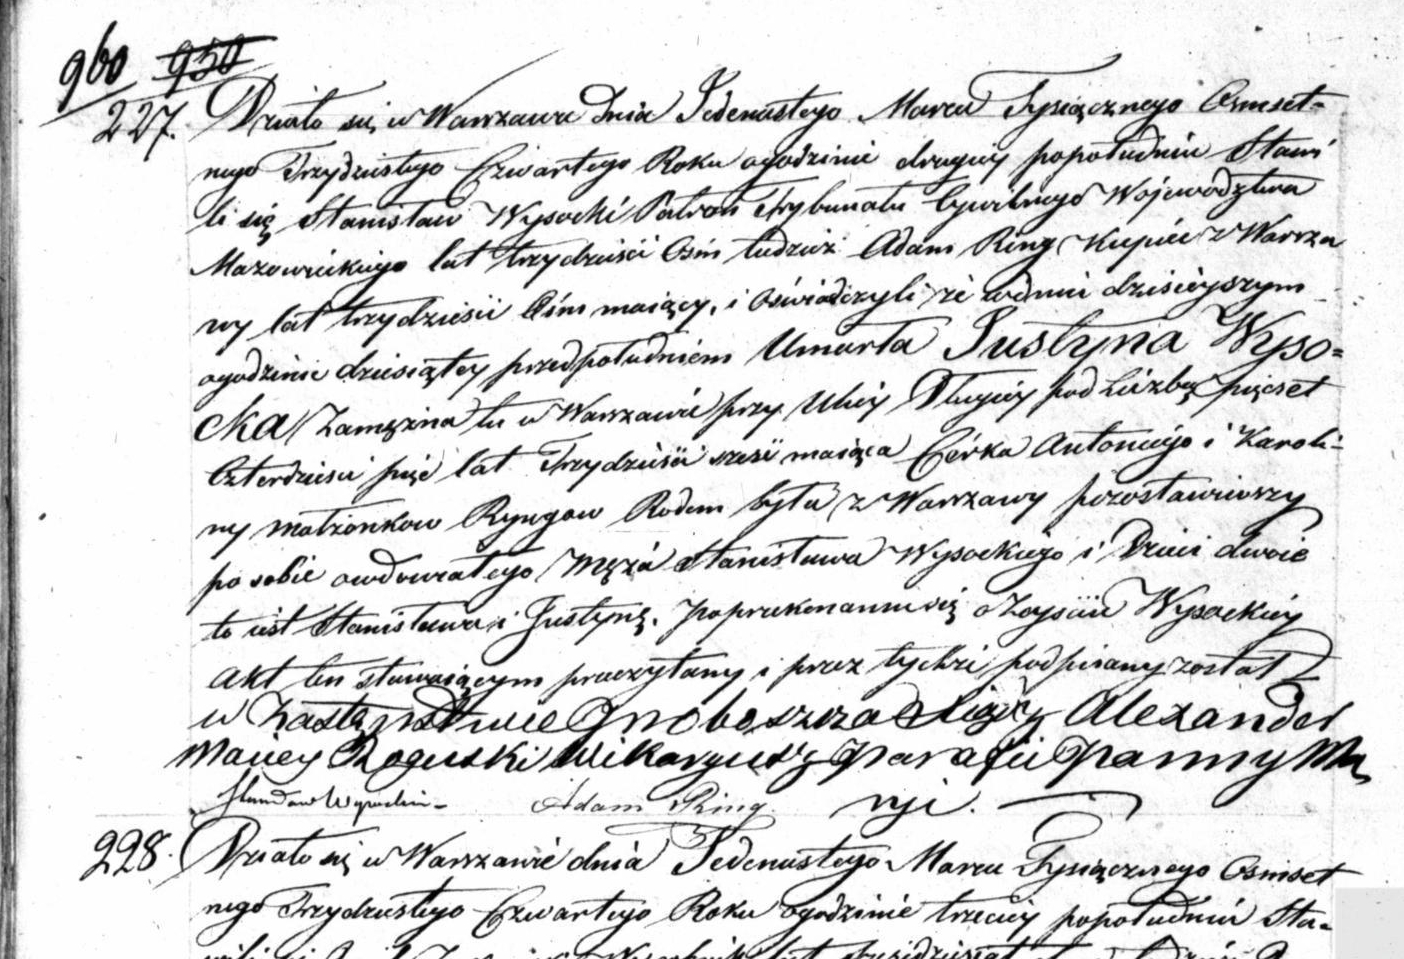 960 950
227. Działo się w Warszawie Dnia Jedenastego Marca Tysiącznego Ośmset-
nego Trzydziestego Czwartego Roku o godzinie drugiey popołudniu Stawi
li się Stanisław Wysocki Patron Trybunału Cywilnego Wojewodztwa
Mazowieckiego lat trzydzieści Ośm tudzież Adam Ring Kupiec z Warsza
wy lat trzydzieści Ośm maiący, i Oświadczyli że w dniu dzisieyszym
o godzinie dziesiątey przed południem Umarła Justyna Wyso=
cka Zamężna tu w Warszawie przy Ulicy Długiey pod Liczbą pięcset
Czterdzieści pięć lat Trzydzieści sześć maiąca Córka Antoniego i Karoli-
ny małżonkow Ryngow Rodem była z Warszawy pozostawiwszy
po sobie owdowiałego Męża Stanisława Wysockiego i Dzieci dwoie
to iest Stanisława i Justynę. Po przekonaniu się o Zeyściu Wysockiey
Akt ten stawaiącym przeczytany i przez tychże podpisany został
w Zastępstwie Proboszcza Xiądz Alexander
Maciey Roguski Wikaryusz Parafii Panny Ma
ryi.
Stanisław Wysocki - Adam Ring
228. Działo się w Warszawie dnia Jedenastego Marca Tysiącznego Ośmset
nego Trzydziestego Czwartego Roku o godzinie trzeciey popołudniu Sta-